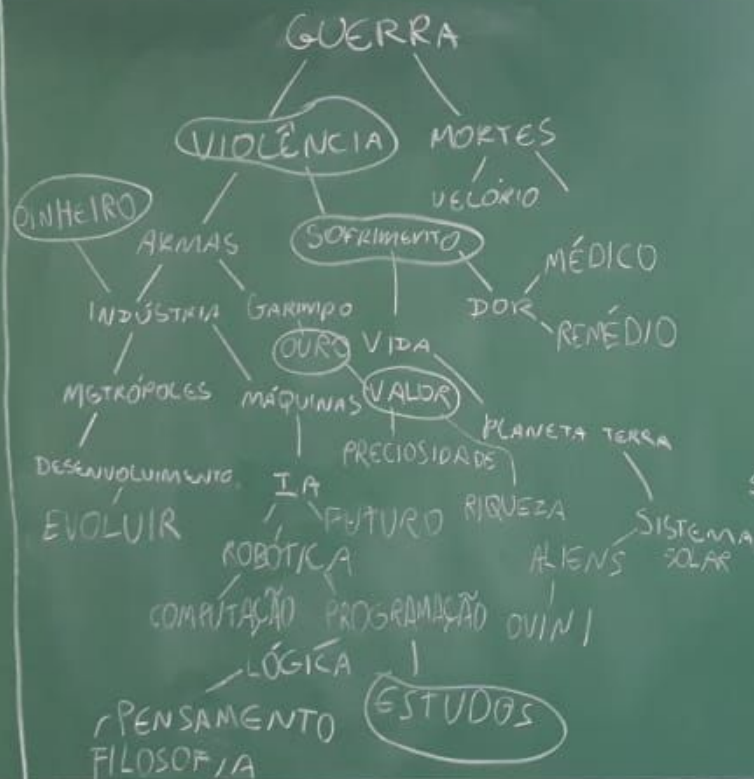 GUERRA
VIOLÊNCIA MORTES
VELÓRIO
DINHEIRO
ARMAS SOFRIMENTO
MÉDICO
INDÚSTRIA GARIMPO DOR
REMÉDIO
OURO VIDA
METRÓPOLES MÁQUINAS VALOR
PLANETA TERRA
PRECIOSIDADE
DESENVOLVIMENTO
IA
RIQUEZA
EVOLUIR FUTURO
SISTEMA
SOLAR
ROBÓTICA ALIENS
COMPUTAÇÃO PROGRAMAÇÃO OVINI
LÓGICA
ESTUDOS
PENSAMENTO
FILOSOFIA